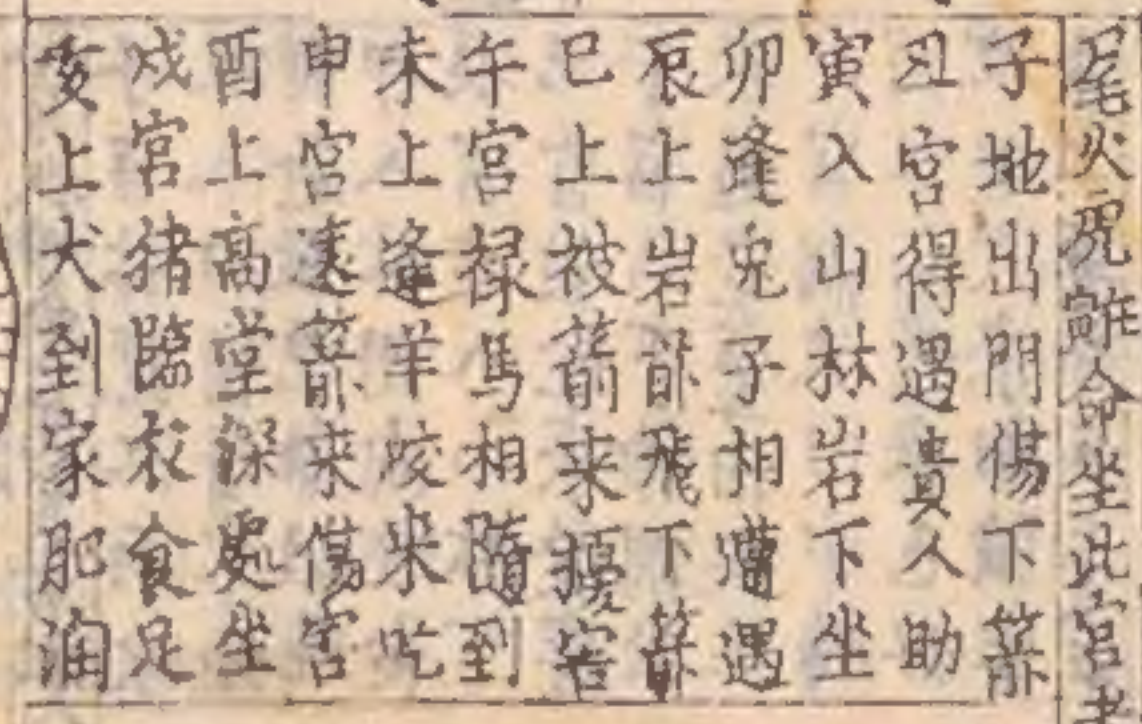 尾火虎辭命坐此宮者
子地出門傷下箭
丑宮得遇貴人助
寅入山林岩下坐
卯逢兎子相遭遇
辰上岩箭飛下箭
巳上被箭来擾害
午宮禄馬相隨到
未上逢羊咬来吃
申宮遠箭来傷害
酉上高堂深處坐
戌宮猪臨衣食足
亥上犬到家肥潤